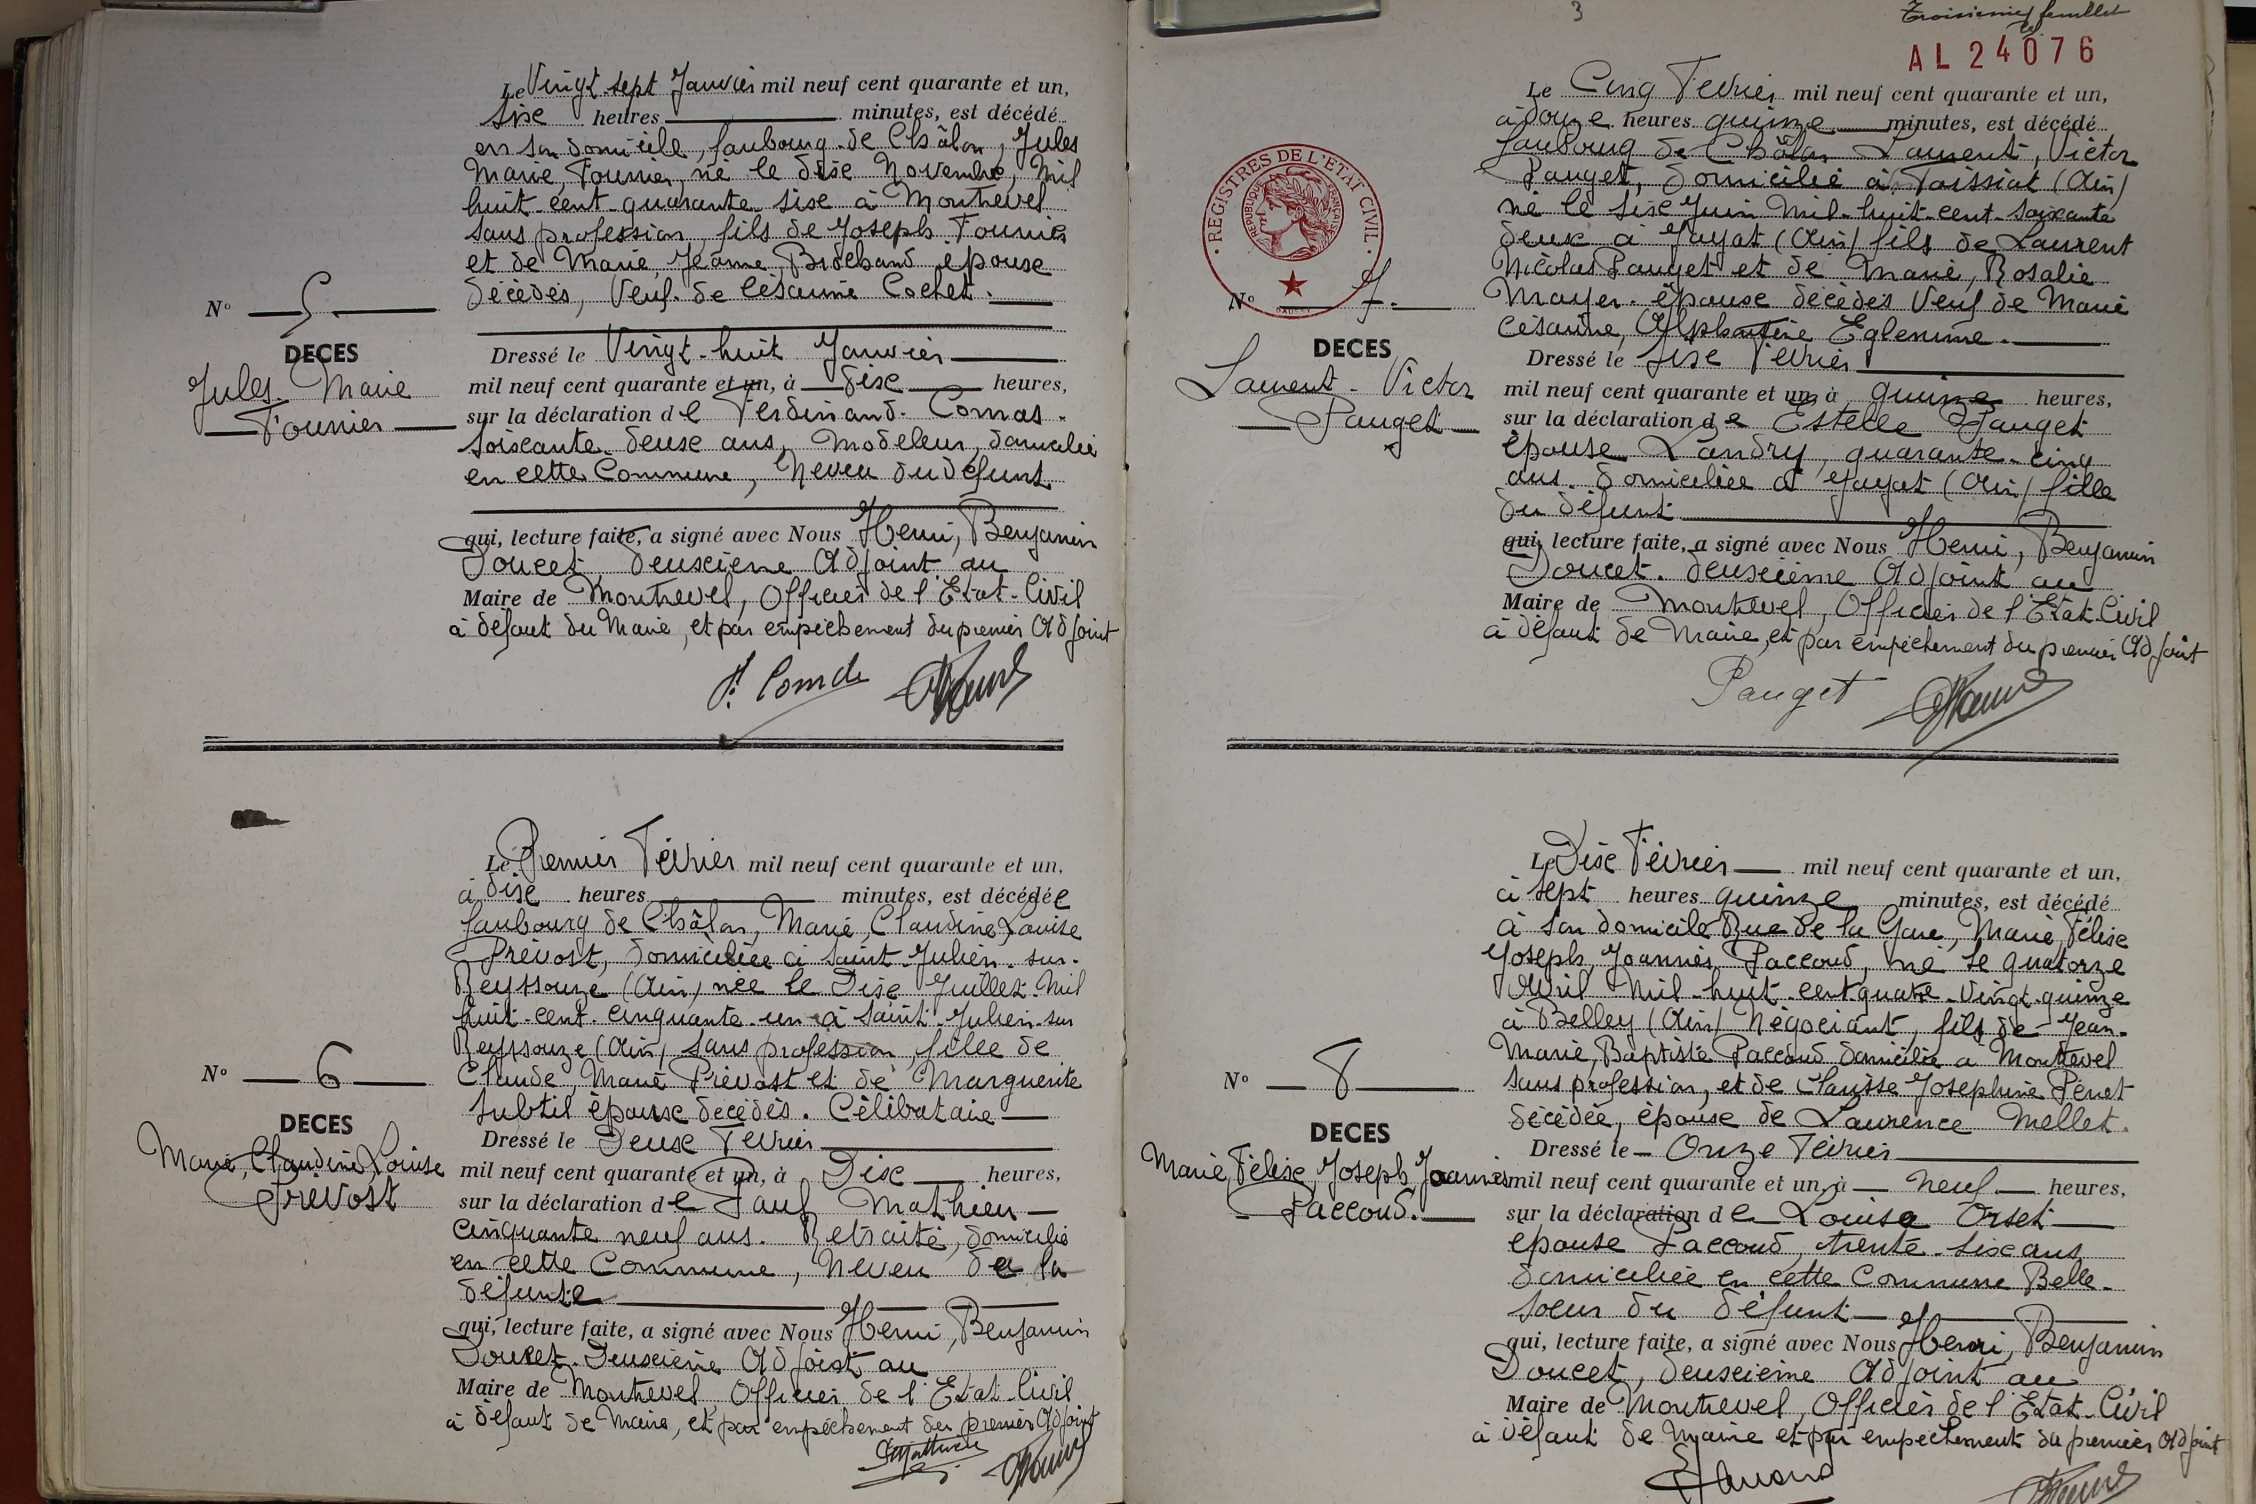 Le Vingt-sept Janvier mil neuf cent quarante et un,
sixe heures minutes, est décédé
en son domicile, faubourg de Châlon, Jules
Marie, Fournier, né le dixe Novembre, Mil
huit-cent-quarante-sixe à Montrevel
sans profession, fils de Joseph Fournier
et de Marie, Jeanne, épouse
décédés, Veuf de Césarine Cochet.
N° 5
DECES
Jules Marie
Fournier
Dressé le Vingt-huit Janvier
mil neuf cent quarante et un, à dixe heures,
sur la déclaration de Ferdinand Comas.
soixante deuxe ans, modeleur, domicilié
en cette Commune, Neveu du défunt
qui, lecture faite, a signé avec Nous Henri, Benjamin
Doucet deuxième Adjoint au
Maire de Montrevel, Officier de l'Etat-Civil
à défaut du Maire, et par empêchement du premier Adjoint
Le Premier Février mil neuf cent quarante et un,
à dixe heures minutes, est décédée
faubourg de Châlon, Marie, Claudine, Louise
Prévost, domiciliée à Saint-Julien-sur-
Reyssouze (Ain) née le Dixe Juillet Mil
huit-cent-cinquante-un à Saint-Julien-sur
Reyssouze (Ain) sans profession, fille de
Claude, Marie Prévost et de Marguerite
Subtil épouse décédés. Célibataire
N° 6
DECES
Marie, Claudine, Louise
Prévost
Dressé le Deuxe Février
mil neuf cent quarante et un, à Dixe heures,
sur la déclaration de Paul Mathieu
cinquante neuf ans. Retraité, domicilié
en cette Commune, Neveu de la
défunte
qui, lecture faite, a signé avec Nous Henri, Benjamin
Doucet Deuxième Adjoint au
Maire de Montrevel, Officier de l'Etat-Civil
à défaut de Maire, et par empêchement du premier Adjoint
3
Troisième feuillet
AL 24076
Le Cinq Février mil neuf cent quarante et un,
à douze heures quinze minutes, est décédé
faubourg de Châlon Laurent, Victor
Pauget, domicilié à Taissiat (Ain)
né le sixe Juin Mil-huit-cent-soixante
deuxe à Jayat (Ain) fils de Laurent
Nicolas Pauget et de Marie, Rosalie
Mayer épouse décédés Veuf de Marie
Césarine, Alphonsine
REGISTRES DE L'ETAT CIVIL
REPUBLIQUE FRANÇAISE
N° 7
DECES
Laurent-Victor
Pauget
Dressé le sixe Février
mil neuf cent quarante et un, à quinze heures,
sur la déclaration de Estelle Pauget
épouse Landry, quarante-cinq
ans. domiciliée à Jayat (Ain) fille
du défunt
qui, lecture faite, a signé avec Nous Henri, Benjamin
Doucet. deuxième Adjoint au
Maire de Montrevel, Officier de l'Etat-Civil
à défaut de Maire, et par empêchement du premier Adjoint
Pauget
Le Dixe Février mil neuf cent quarante et un,
à sept heures quinze minutes, est décédé
à son domicile Rue de la Gare, Marie, Félixe
Joseph, Joannès Paccoud, né le quatorze
Avril Mil-huit-cent quatre-vingt-quinze
à Belley (Ain) Négociant, fils de Jean-
Marie, Baptiste Paccoud domicilié à Montrevel
sans profession, et de Josephine Pénet
décédée, épouse de Laurence Mellet.
N° 8
DECES
Marie, Félixe, Joseph, Joannès
Paccoud.
Dressé le Onze Février
mil neuf cent quarante et un, à neuf heures,
sur la déclaration de Louise Orset
épouse Paccoud, trente-sixe ans
domiciliée en cette Commune Belle-
soeur du défunt
qui, lecture faite, a signé avec Nous Henri, Benjamin
Doucet, deuxième Adjoint au
Maire de Montrevel, Officier de l'Etat-Civil
à défaut de Maire et par empêchement du premier Adjoint